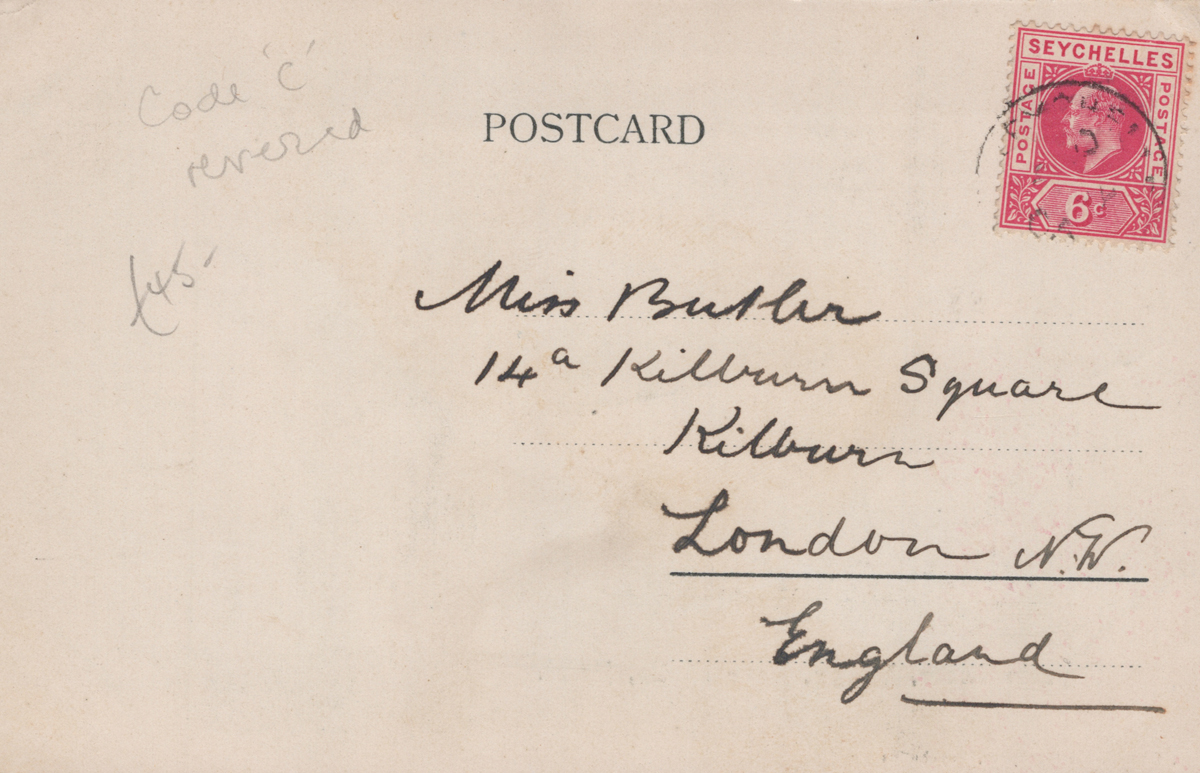 Code 'C'
reversed
£45-
POSTCARD
SEYCHELLES
POSTAGE
POSTAGE
6c
Miss Butler
14a Kilburn Square
Kilburn
London N.W.
England